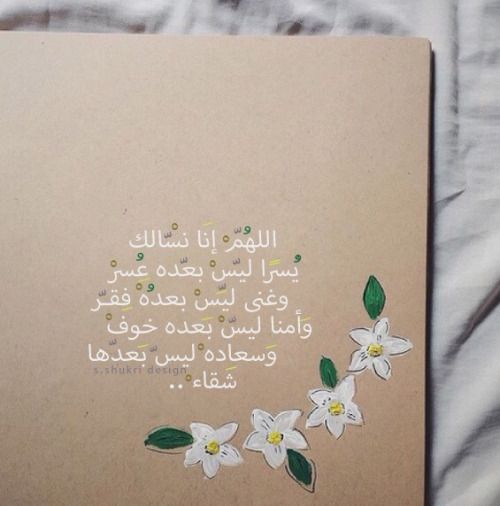 اللهُمّ إنَا نسْالك
يُسرًا ليسّ بعّده عُسرْ
وغنى ليسّ بعدهُ فِقـّر
وَأمنا ليسّ بَعده خوفْ
وَسعاده ليسّ بَعدّها
s.shukri design
شَقاء ..